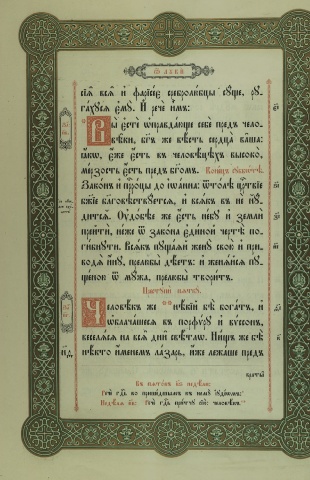 Ѿ ЛꙋКИ
сїѧ̑ всѧ̑ и҆ фарїсе́є сребролю́бцы сꙋ́ще, рꙋ-
га́хꙋсѧ є҆мꙋ̀. И҆ речѐ и҆̀мъ:
Вы̀ є҆стѐ ѡ҆правда́юще себѐ пред̾ чело-
вѣ̑ки, бг҃ъ же вѣ́сть сердца̀ ва̑ша:
ꙗ҆́кѡ, є҆́же є҆́сть въ человѣ́цѣхъ высоко̀,
ме́рзость є҆́сть пред̾ бг҃омъ. Коне́цъ сꙋббѡ́тѣ.
Зако́нъ и҆ прⷪ҇ро́цы до і҆ѡа́нна: ѿто́лѣ црⷭ҇твїе
бж҃їе благовѣствꙋ́етсѧ, и҆ всѧ́къ въ нѐ нꙋ́-
дитсѧ. Оу҆до́бѣе же є҆́сть не́бꙋ и҆ землѝ
прейтѝ, не́же ѿ зако́на є҆ди́нѣй чертѣ̀ по-
ги́бнꙋти. Всѧ́къ пꙋща́ѧй женꙋ̀ свою̀ и҆ при-
водѧ̀ и҆́нꙋ, прелюбы̀ дѣ́етъ: и҆ женѧ́йсѧ пꙋ-
ще́ною ѿ мꙋ́жа, прелюбы̀ твори́тъ.
Человѣ́къ же нѣ́кїй бѣ̀ бога́тъ, и҆
ѡ҆блача́шесѧ въ порфѵ́рꙋ и҆ вѵ́ссонъ,
веселѧ́сѧ на всѧ̑ дни̑ свѣ́тлѡ. Ни́щь же бѣ̀
нѣ́кто и҆́менемъ ла́зарь, и҆́же лежа́ше пред̾
враты̑